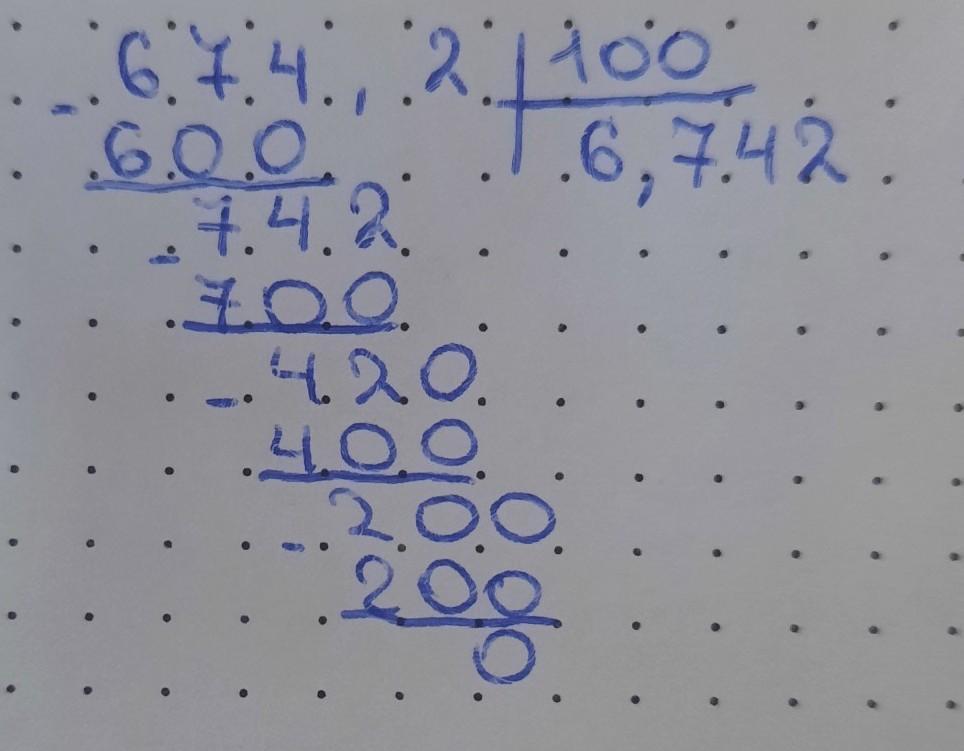 - 674,2 | 100
600 | 6,742
- 742
700
- 420
400
- 200
200
0